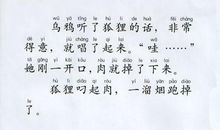 wū yā tīng le hú li de huà fēi cháng
乌鸦听了狐狸的话，非常
dé yì jiù chàng le qǐ lái wā
得意，就唱了起来。“哇……”
tā gāng yì kāi kǒu ròu jiù diào le xià lái
她刚一开口，肉就掉了下来。
hú li diāo qǐ ròu yí liù yān pǎo diào
狐狸叼起肉，一溜烟跑掉
le
了。